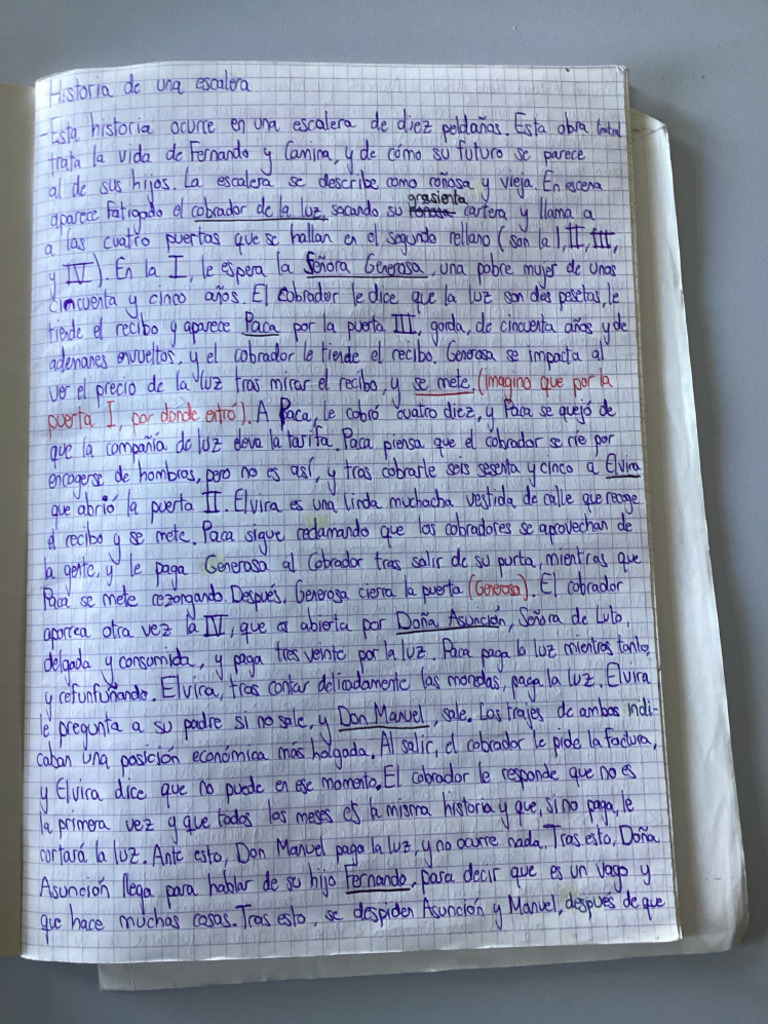 Historia de una escalera
-Esta historia ocurre en una escalera de diez peldaños. Esta obra teatral
trata la vida de Fernando y Carmina, y de cómo su futuro se parece
al de sus hijos. La escalera se describe como roñosa y vieja. En escena
aparece fatigado el cobrador de la luz, sacando su grasienta cartera y llama a
a las cuatro puertas que se hallan en el segundo rellano (son la I, II, III,
y IV). En la I, le espera la Señora Generosa, una pobre mujer de unos
cincuenta y cinco años. El cobrador le dice que la luz son dos pesetas, le
tiende el recibo y aparece Paca por la puerta III, gorda, de cincuenta años y de
ademanes envueltos, y el cobrador le tiende el recibo. Generosa se impacta al
ver el precio de la luz tras mirar el recibo, y se mete. (Imagino que por la
puerta I, por donde entró). A Paca, le cobró cuatro diez, y Paca se quejó de
que la compañía de luz eleva la tarifa. Paca piensa que el cobrador se ríe por
encogerse de hombras, pero no es así, y tras cobrarle seis sesenta y cinco a Elvira
que abrió la puerta II. Elvira es una linda muchacha vestida de calle que recoge
el recibo y se mete. Paca sigue reclamando que los cobradores se aprovechan de
la gente, y le paga Generosa al Cobrador tras salir de su purta, mientras que
Paca se mete rezongando. Después, Generosa cierra la puerta (Generosa). El cobrador
aporrea otra vez la IV, que es abierta por Doña Asunción, Señora de Luto,
delgada y consumida, y paga tres veinte por la luz. Paca paga la luz mientras tanto,
y refunfuñando. Elvira, tras contar delicadamente las monedas, paga la luz. Elvira
le pregunta a su padre si no sale, y Don Manuel, sale. Los trajes de ambos indi-
caban una posición económica más holgada. Al salir, el cobrador le pide la factura,
y Elvira dice que no puede en ese momento. El cobrador le responde que no es
la primera vez y que todos los meses es la misma historia y que, si no paga, le
cortará la luz. Ante esto, Don Manuel paga la luz, y no ocurre nada. Tras esto, Doña
Asunción llega para hablar de su hijo Fernando, para decir que es un vago y
que hace muchas cosas. Tras esto, se despiden Asunción y Manuel, después de que